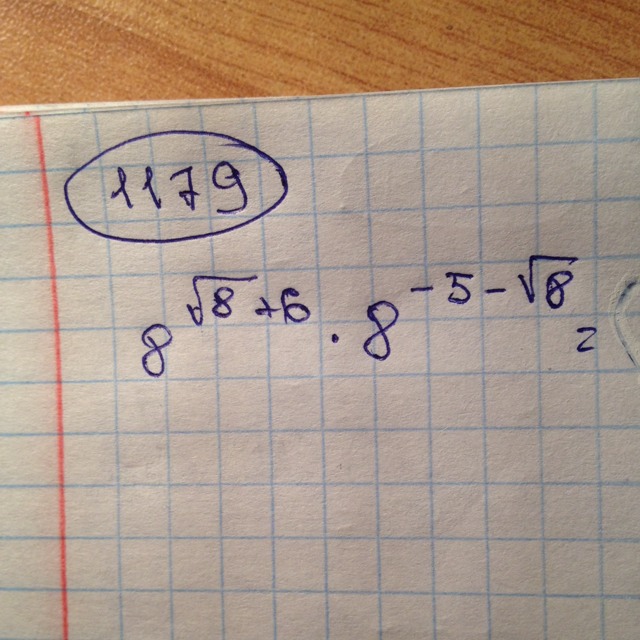 1179
8^{√8+6} · 8^{-5-√8} =